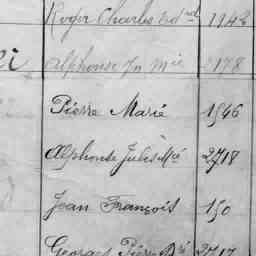 Roger Charles
Alphonse Jn Mie 2178
Pierre Marie 1546
Alphonse Jules Mie 2718
Jean François 150
Georges Pierre